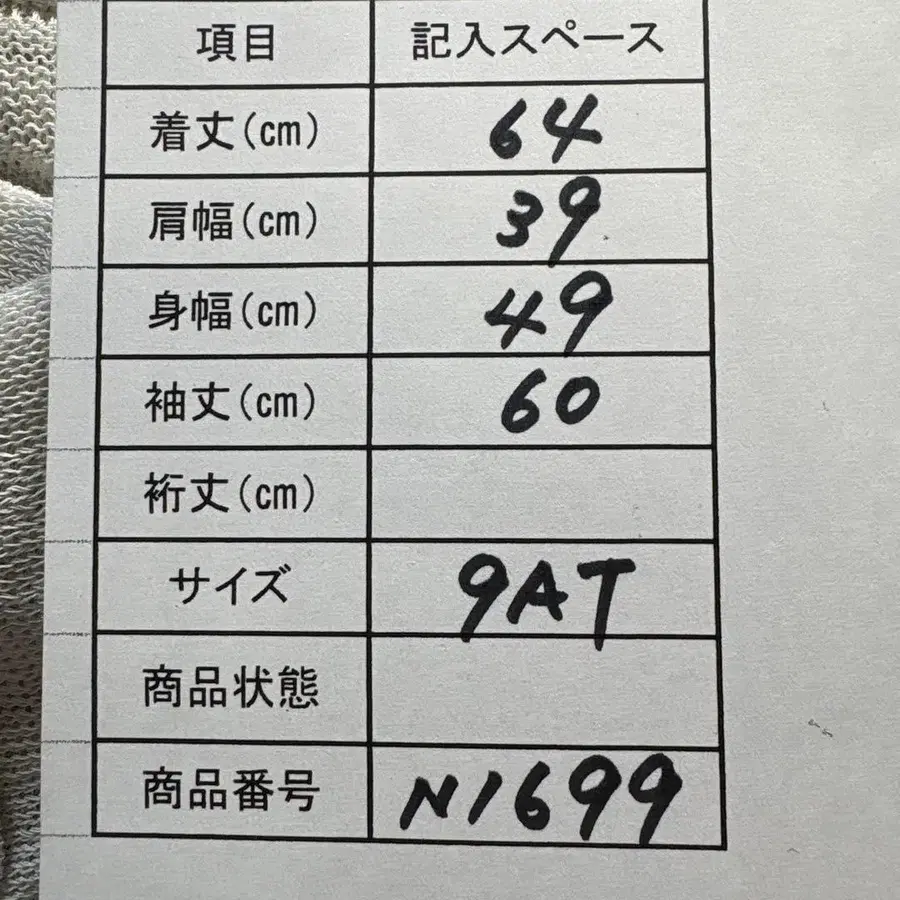 項目 記入スペース
着丈(cm) 64
肩幅(cm) 39
身幅(cm) 49
袖丈(cm) 60
裄丈(cm)
サイズ 9AT
商品状態
商品番号 N1699